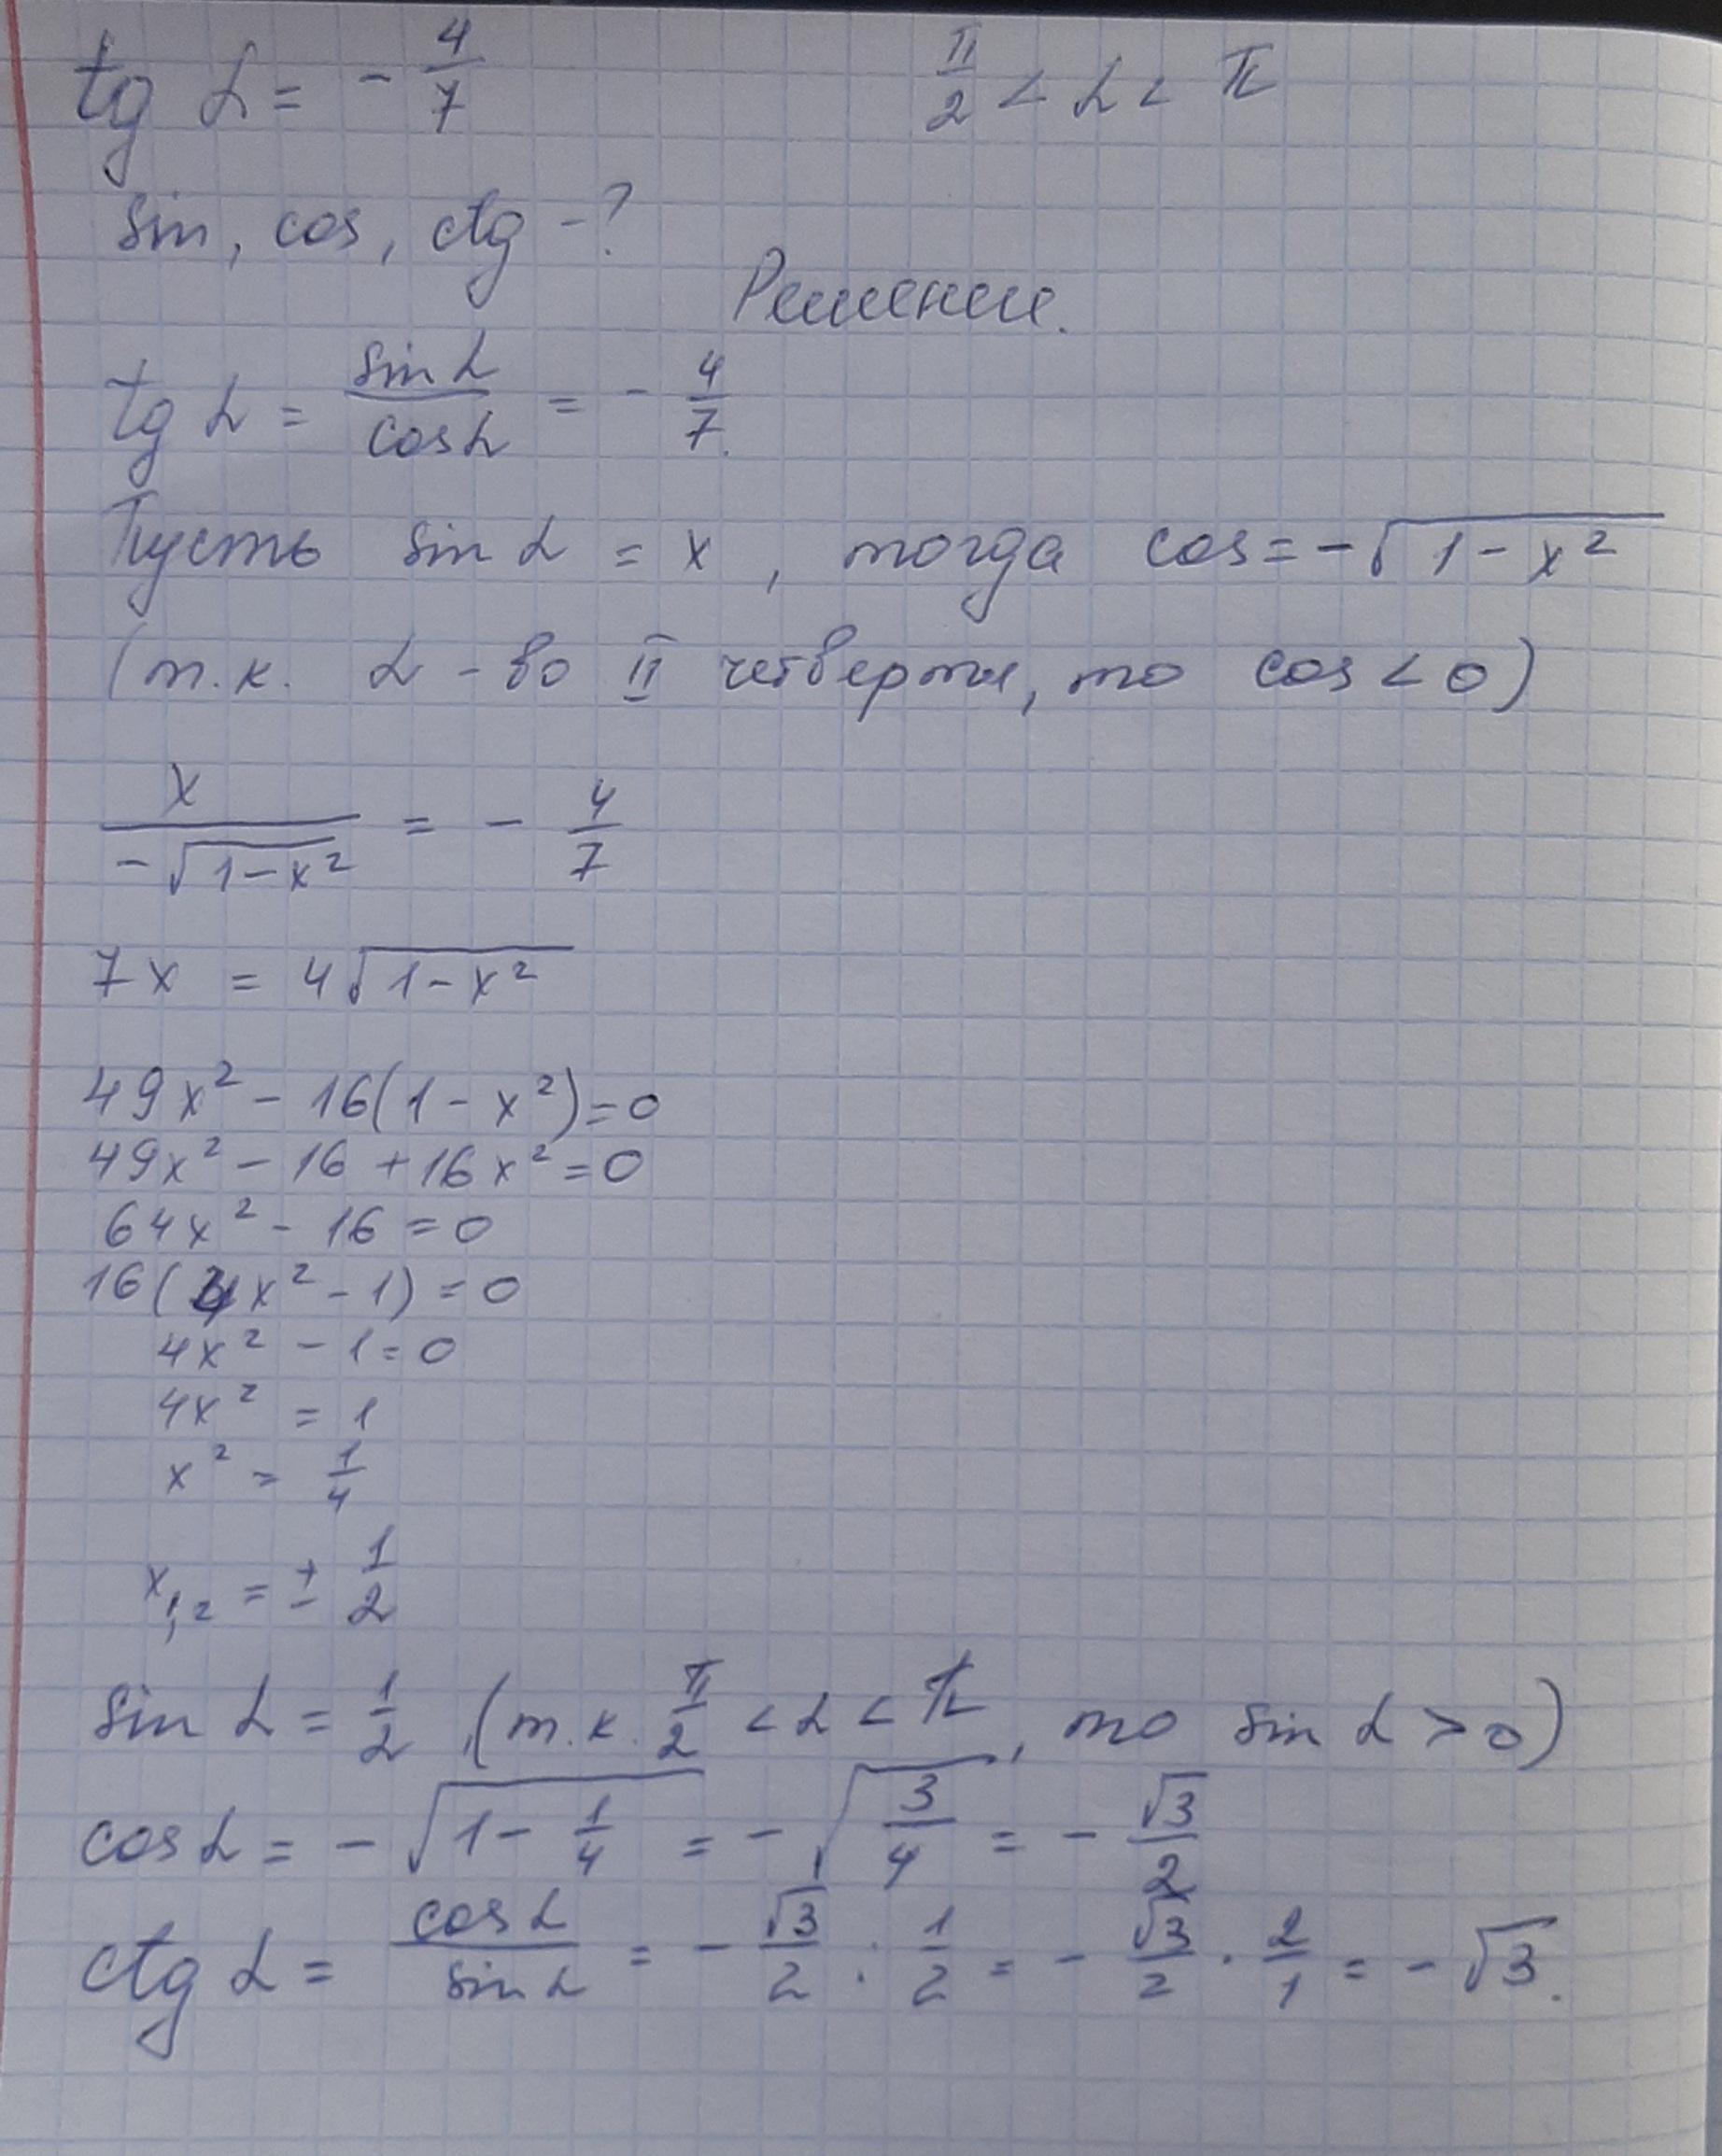 tg α = - 4/7    π/2 < α < π
sin, cos, ctg - ?
Решение.
tg α = sin α / cos α = - 4/7.
Пусть sin α = x, тогда cos = -√(1 - x²)
(т.к. α - во II четверти, то cos < 0)
x / -√(1-x²) = - 4/7
7x = 4√(1-x²)
49x² - 16(1 - x²) = 0
49x² - 16 + 16x² = 0
64x² - 16 = 0
16(4x² - 1) = 0
4x² - 1 = 0
4x² = 1
x² = 1/4
x₁,₂ = ± 1/2
sin α = 1/2, (т.к. π/2 < α < π, то sin α > 0)
cos α = -√(1 - 1/4) = -√(3/4) = - √3/2
ctg α = cos α / sin α = - √3/2 : 1/2 = - √3/2 · 2/1 = - √3.